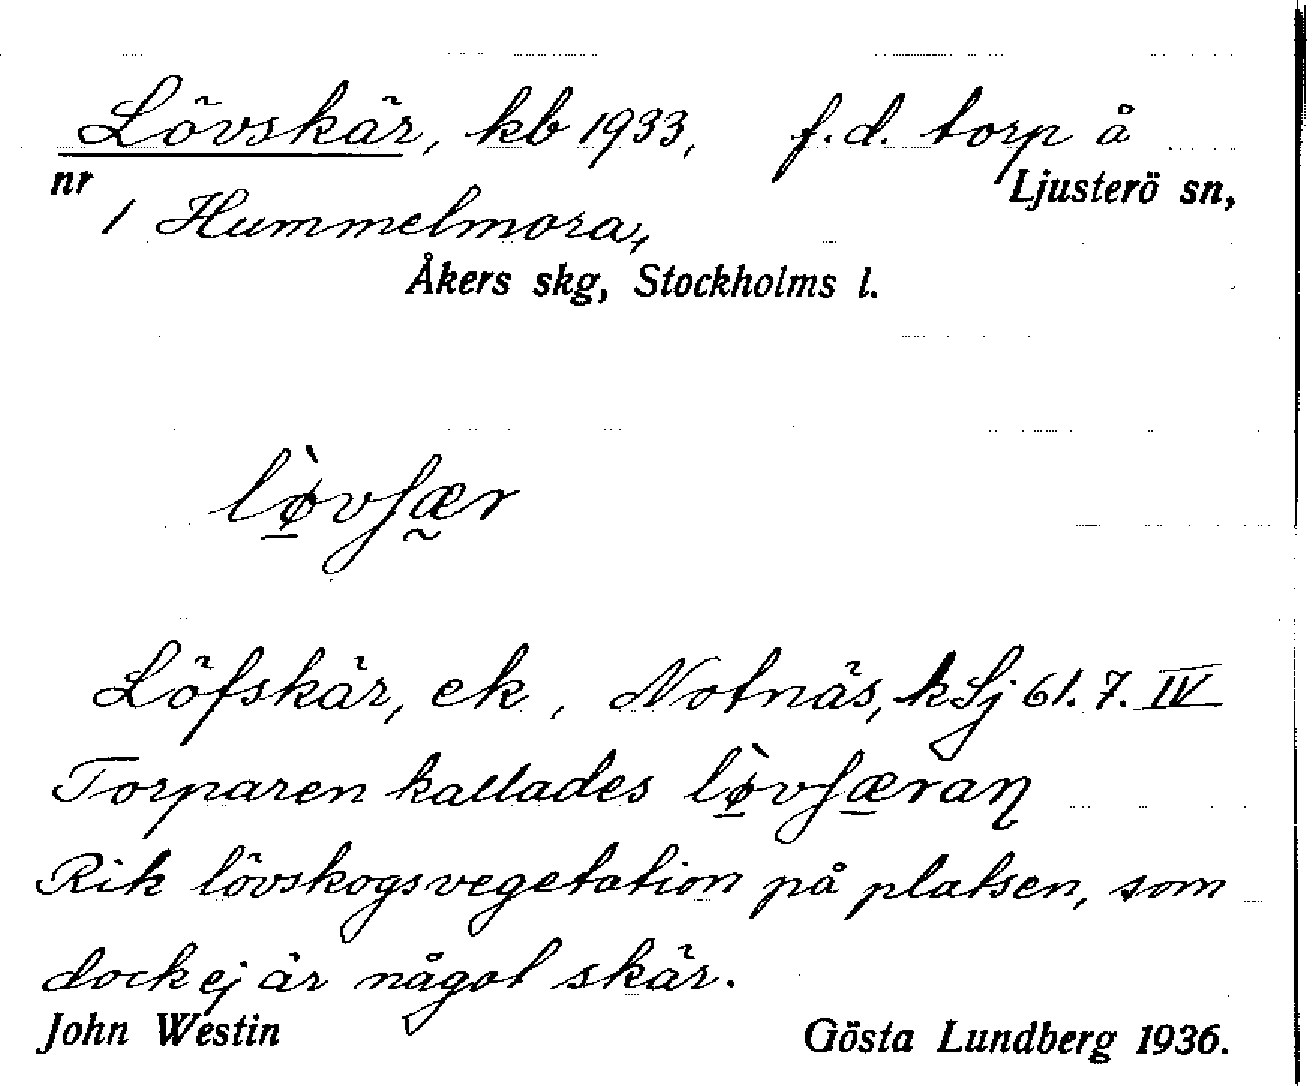 Lövskär, kb 1933, f.d. torp å
nr Ljusterö sn,
1 Hummelmora,
Åkers skg, Stockholms l.
lø̀vʃær
Löfskär, ek, Notnäs, k Lj 61. 7. IV
Torparen kallades lø̀vʃæraɳ
Rik lövskogsvegetation på platsen, som
dock ej är något skär.
John Westin Gösta Lundberg 1936.